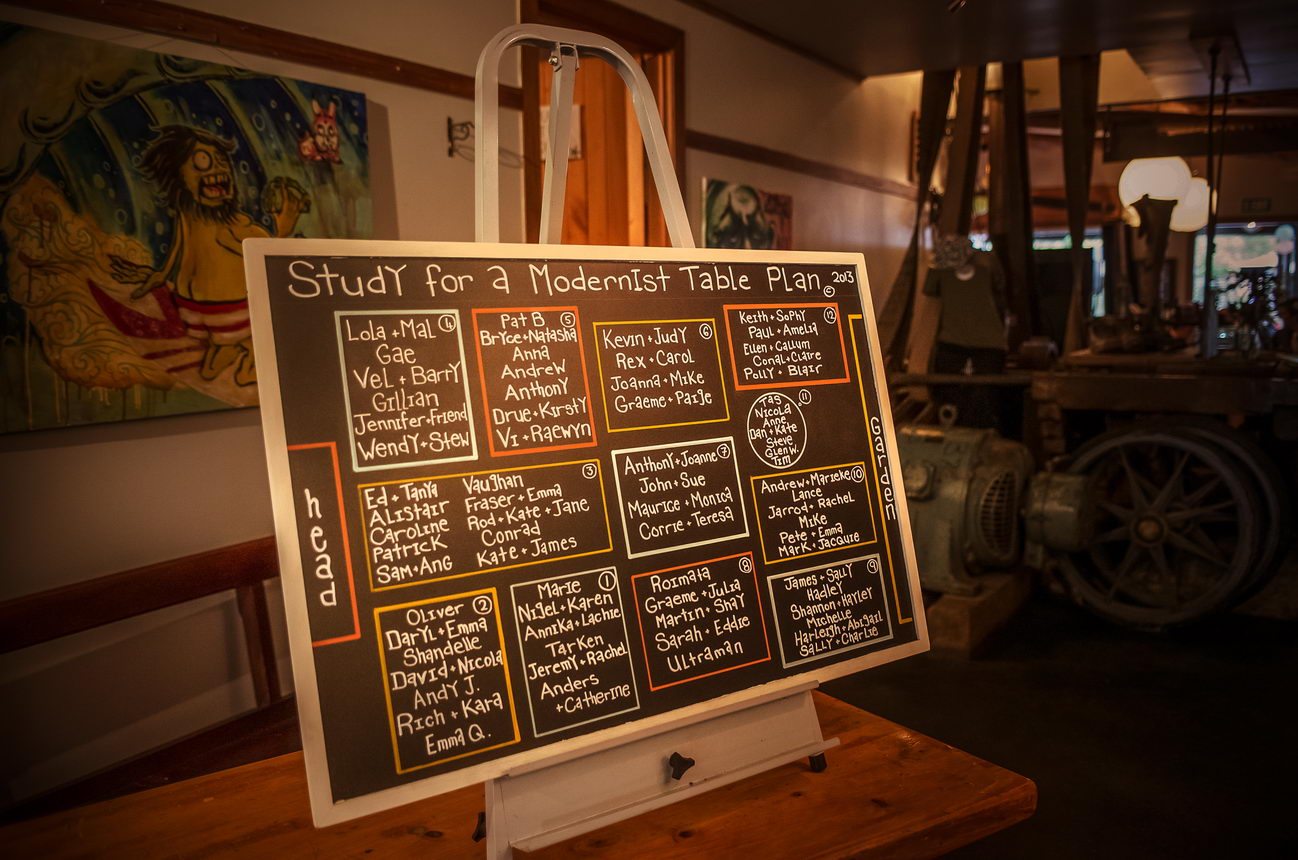 Study for a Modernist Table Plan © 2013
head
Lola + Mal 4
Gae
Vel + Barry
Gillian
Jennifer + Friend
Wendy + Stew
Pat B 5
Bryce + Natasha
Anna
Andrew
Anthony
Drue + Kirsty
Vi + Raewyn
Kevin + Judy 6
Rex + Carol
Joanna + Mike
Graeme + Paige
Keith + Sophy 12
Paul + Amelia
Ellen + Callum
Conal + Claire
Polly + Blair
Tas 11
Nicola
Anne
Dan + Kate
Steve
Glen W.
Tim
Garden
3
Ed + Tanya
Alistair
Caroline
Patrick
Sam + Ang
Vaughan
Fraser + Emma
Rod + Kate + Jane
Conrad
Kate + James
Anthony + Joanne 7
John + Sue
Maurice + Monica
Corrie + Teresa
Andrew + Marieke 10
Lance
Jarrod + Rachel
Mike
Pete + Emma
Mark + Jacquie
Oliver 2
Daryl + Emma
Shandelle
David + Nicola
Andy J.
Rich + Kara
Emma Q.
Marie 1
Nigel + Karen
Annika + Lachie
Tarken
Jeremy + Rachel
Anders
+ Catherine
Roimata 8
Graeme + Julia
Martin + Shay
Sarah + Eddie
Ultraman
James + Sally 9
Hadley
Shannon + Hayley
Michelle
Harleigh + Abigail
Sally + Charlie